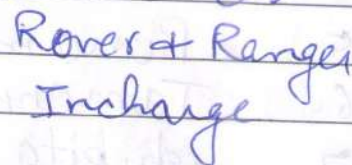 Rover & Ranger
Incharge